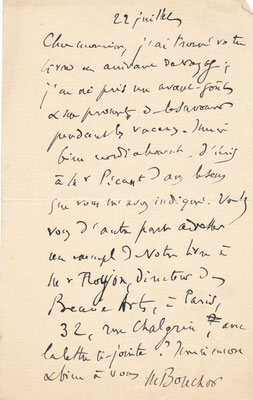 22 juillet
Cher monsieur, j'ai trouvé votre
livre en arrivant de voyage ;
j'en ai pris un avant-goût
& me promets de le savourer
pendant les vacances. Merci
bien cordialement. J'écris
à Mr Picard dans le sens
que vous m'avez indiqué. Voulez
vous d'autre part adresser
un exempl. de votre livre à
Mr Roujon, directeur des
Beaux Arts, à Paris,
32, rue Chalgrin, avec
la lettre ci-jointe ? Merci encore
& bien à vous M Bouchor